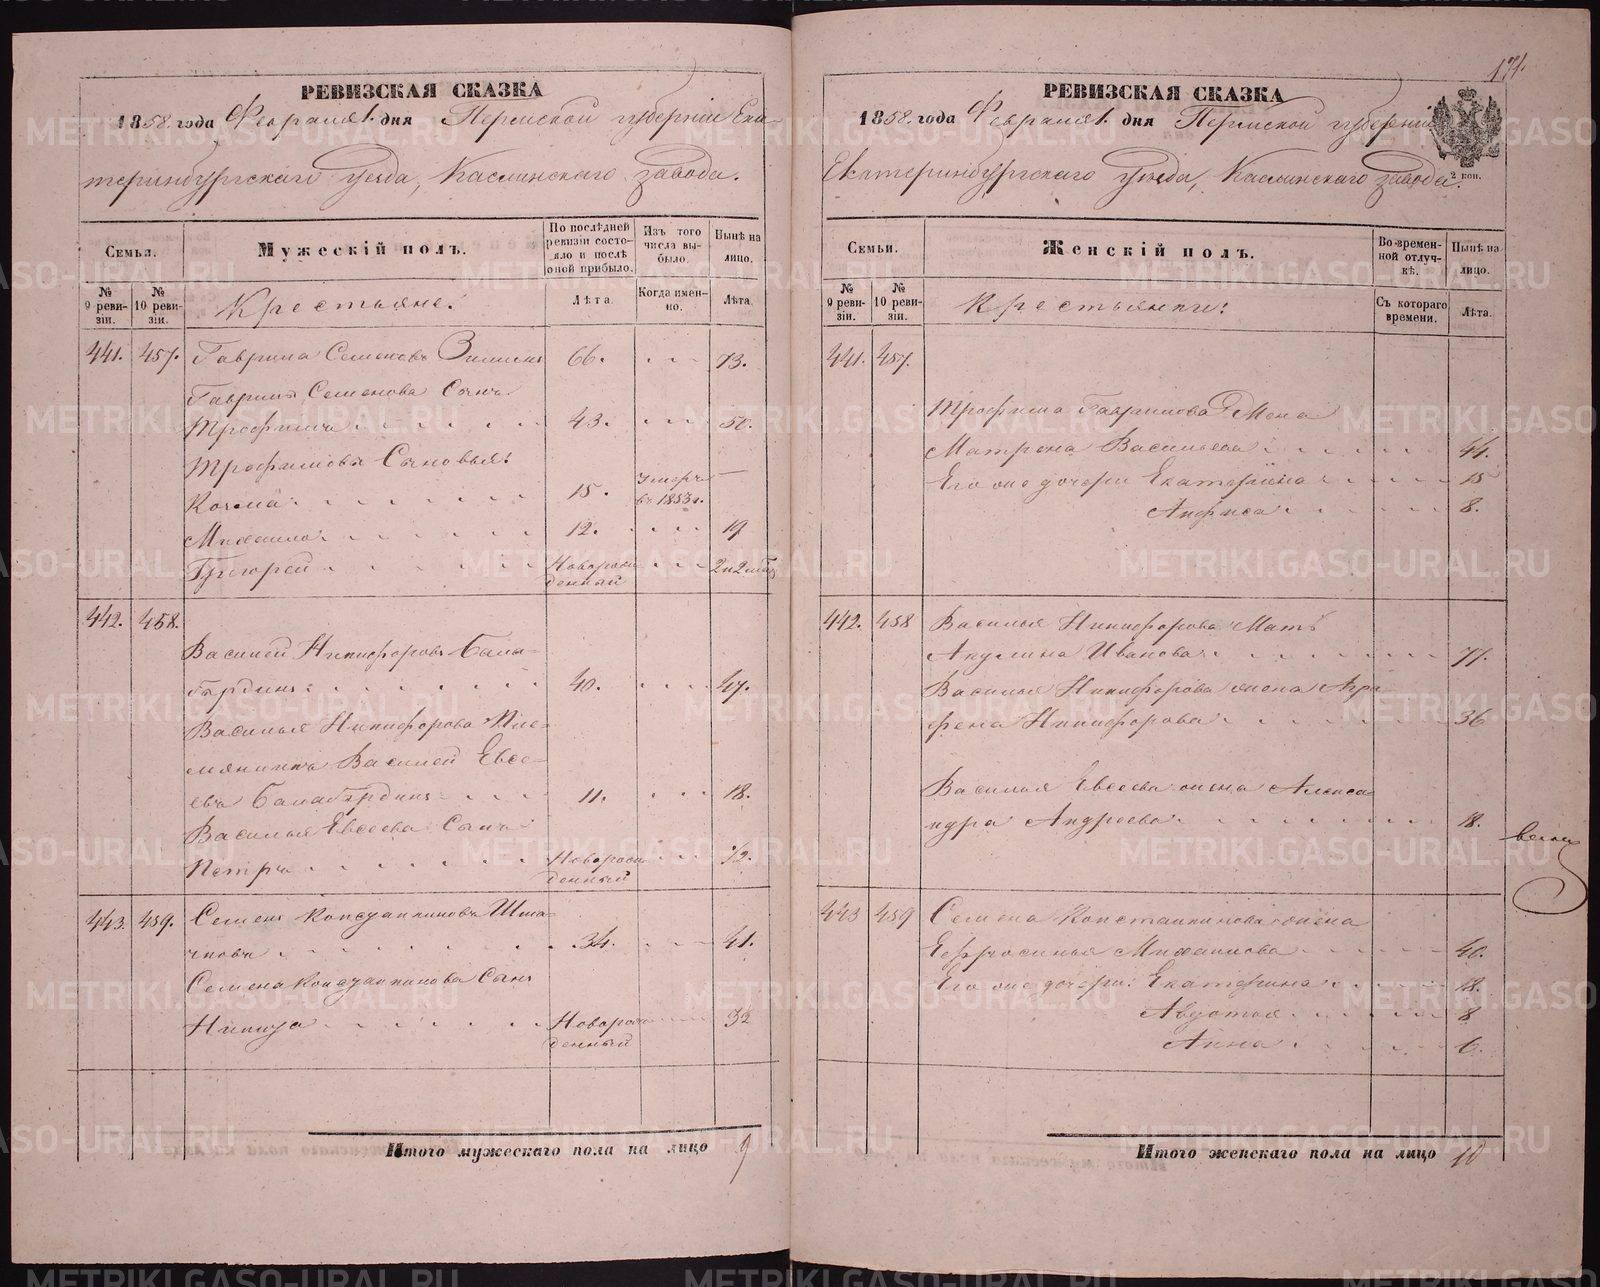 РЕВИЗСКАЯ СКАЗКА
1858. года Февраля 1. дня Пермской губерніи Ека-
теринбургскаго Уезда, Каслинскаго завода.
Семьи.
Мужескій полъ.
По послѣдней ревизіи состо-
яло и послѣ оной прибыло.
Изъ того числа вы-
было.
Нынѣ на лицо.
№ 9 реви-
зіи.
№ 10 реви-
зіи.
Крестьяне:
Лѣта.
Когда имен-
но.
Лѣта.
441. 457. Гаврила Семеновъ 66. 73.
Гаврилы Семенова Сынъ
Трофимъ 43. 50.
Трофимовы Сыновья:
Козма 15. Умеръ въ 1853 г. —
Михаило 12. 19
Григорей Новорож-
денный 2 и 2 мѣс
442. 458.
Василей Никифоровъ Бала-
бардинъ 40. 47.
Василья Никифорова Пле-
мянникъ Василей Евсе-
евъ Балабардинъ 11. 18.
Василья Евсеева Сынъ
Петръ Новорож-
денный 1/2.
443. 459. Семенъ Констанкиновъ Шма-
34. 41.
Семена Констанкинова Сынъ
Никита Новорож-
денный
Итого мужескаго пола на лицо 9
174.
РЕВИЗСКАЯ СКАЗКА
1858. года Февраля 1. дня Пермской губерніи
Екатеринбургскаго Уезда, Каслинскаго завода.
2 коп.
Семьи.
Женскій полъ.
Во временной отлуч-
кѣ.
Нынѣ на лицо.
№ 9 реви-
зіи.
№ 10 реви-
зіи.
Крестьянки:
Съ котораго времени.
Лѣта.
441. 457.
Трофима Гаврилова Жена
Матрена Васильева 44.
Его же дочери Екатерина 15
Анфиса 8.
442. 458 Василья Никифорова Мать
Акулина Иванова 77.
Василья Никифорова жена Агра-
фена Никифорова 36
Василья Евсеева жена Алекса-
ндра Андреева 18.
443 459 Семена Констанкинова жена
Ефросинья Михаилова 40.
Его же дочери: Екатерина 18.
Августа 8
Анна 6.
Итого женскаго пола на лицо 10
METRIKI.GASO-URAL.RU